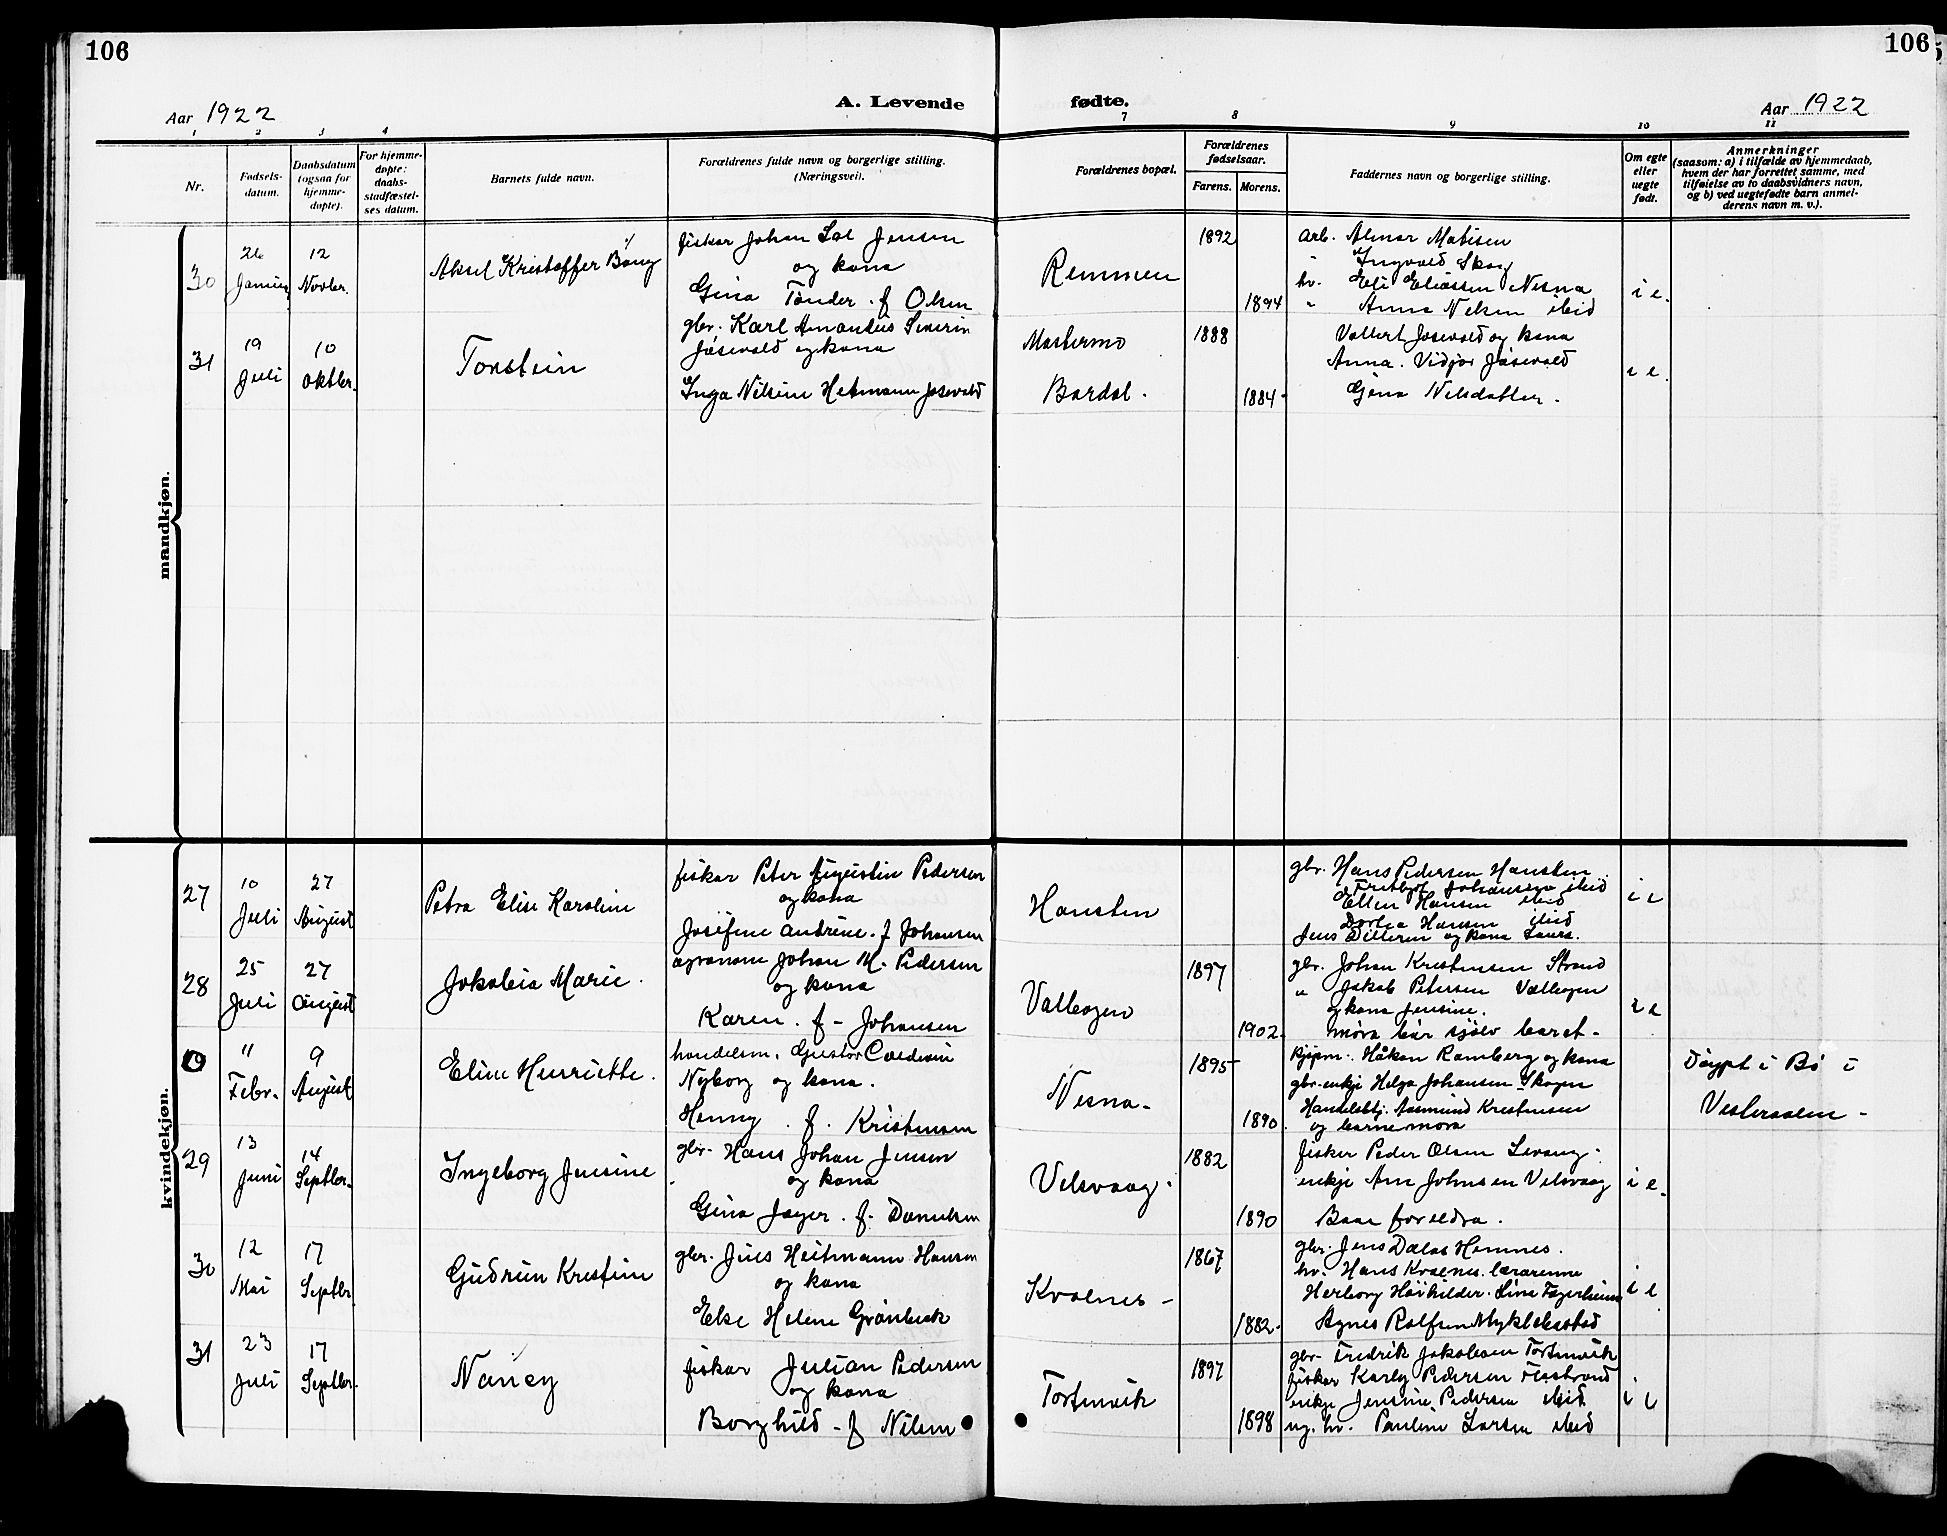 106
106
Aar 1922
A. Levende
fødte.
Aar 1922
1 2 3 4 7 8 9 10 11
Nr.
Fødsels-
datum.
Daabsdatum
(ogsaa for
hjemme-
døpte).
For hjemme-
døpte:
daabs-
stadfæstel-
ses datum.
Barnets fulde navn.
Forældrenes fulde navn og borgerlige stilling.
(Næringsvei).
Forældrenes bopæl.
Forældrenes
fødselsaar.
Farens. Morens.
Faddernes navn og borgerlige stilling.
Om egte
eller
uegte
født.
Anmerkninger
(saasom: a) i tilfælde av hjemmedaab,
hvem der har forrettet samme, med
tilføielse av to daabsvidners navn,
og b) ved uegtefødte barn anmel-
derens navn m. v.).
mandkjøn.
30
26
12
Novbr.
Aksel Kristoffer
fiskar Johan Jensen
og kona
Gina Tønder f. Olsen
Remmen
1892
1894
arb. Almar Matisen
" Ingvald Skog
hv. Eli Eliassen Nesna
" Anna Nelsen ibid
i e.
31
19
Juli
10
Oktbr.
Torstein
gbr. Karl Amandus Severin
Jøsevold og kona
Inga Nilsine Hetmann Jøsevold
Mastermo
Bardal.
1888
1884
Valbert Jøsevold og kona
Anna. Jøsevold
Gina Nelsdatter.
i e.
kvindekjøn.
27
10
Juli
27
August
Petra Elise Karoline
fiskar Peter Augustin Pedersen
og kona
Josefine Andrine f. Johansen
Hansten
gbr. Hans Pedersen Hansten
Fritbjof Johansen ibid
Ellen Hansen ibid
Dortea Hansen ibid
Jens og kona Laura.
i e
28
25
Juli
27
August
Jakobia Marie.
agronom Johan M. Pedersen
og kona
Karen. f- Johansen
Valbogen
1897
1902.
gbr. Johan Kristensen Strand
" Jakob Petersen Valbogen
og kona Jensine.
Mora bar sjølv baret.
i e
11
Febr.
9
August
Eline Henriette.
handelsm. Gustav
Nyborg og kona.
Henny. f. Kristensen
Nesna-
1895
1890
kjøpm. Håkon Ramberg og kona
gbr. enkje Helga Johansen Skogen
Handelsbtj. Aasmund Kristensen
og barnemora
Døypt i Bø i
Vesteraalen-
29
13
Juni
14
Septbr.
Ingeborg Jensine
gbr. Hans Johan Jensen
og kona
Gina Jæger. f. Danielsen
Velsvaag.
1882
1890
fisker Peder Olsen Levang.
enkje Ane Johnsen Velsvaag
Baae foreldra.
i e.
30
12
Mai
17
Septbr.
Gudrun Kristine
gbr. Jens Heitmann Hansen
og kona
Else Helene Grønbeck
Kvalnes-
1867
1882.
gbr. Jens Hemnes.
hv. Hans Kvalnes. lærarinne
Herborg Høihilder. Line Fagerheim
Agnes Rolfsen Myklebostad
i e
31
23
Juli
17
Septbr.
Nancy
fiskar Julian Pedersen
og kona
Borghild - f Nilsen
Tortenvik
1897
1898
gbr. Fredrik Jakobsen Tortenvik
fiskar Karly Pedersen Flostrand
enkje Jensine Pedersen ibid
ug. hv. Pauline Larsen ibid
i e